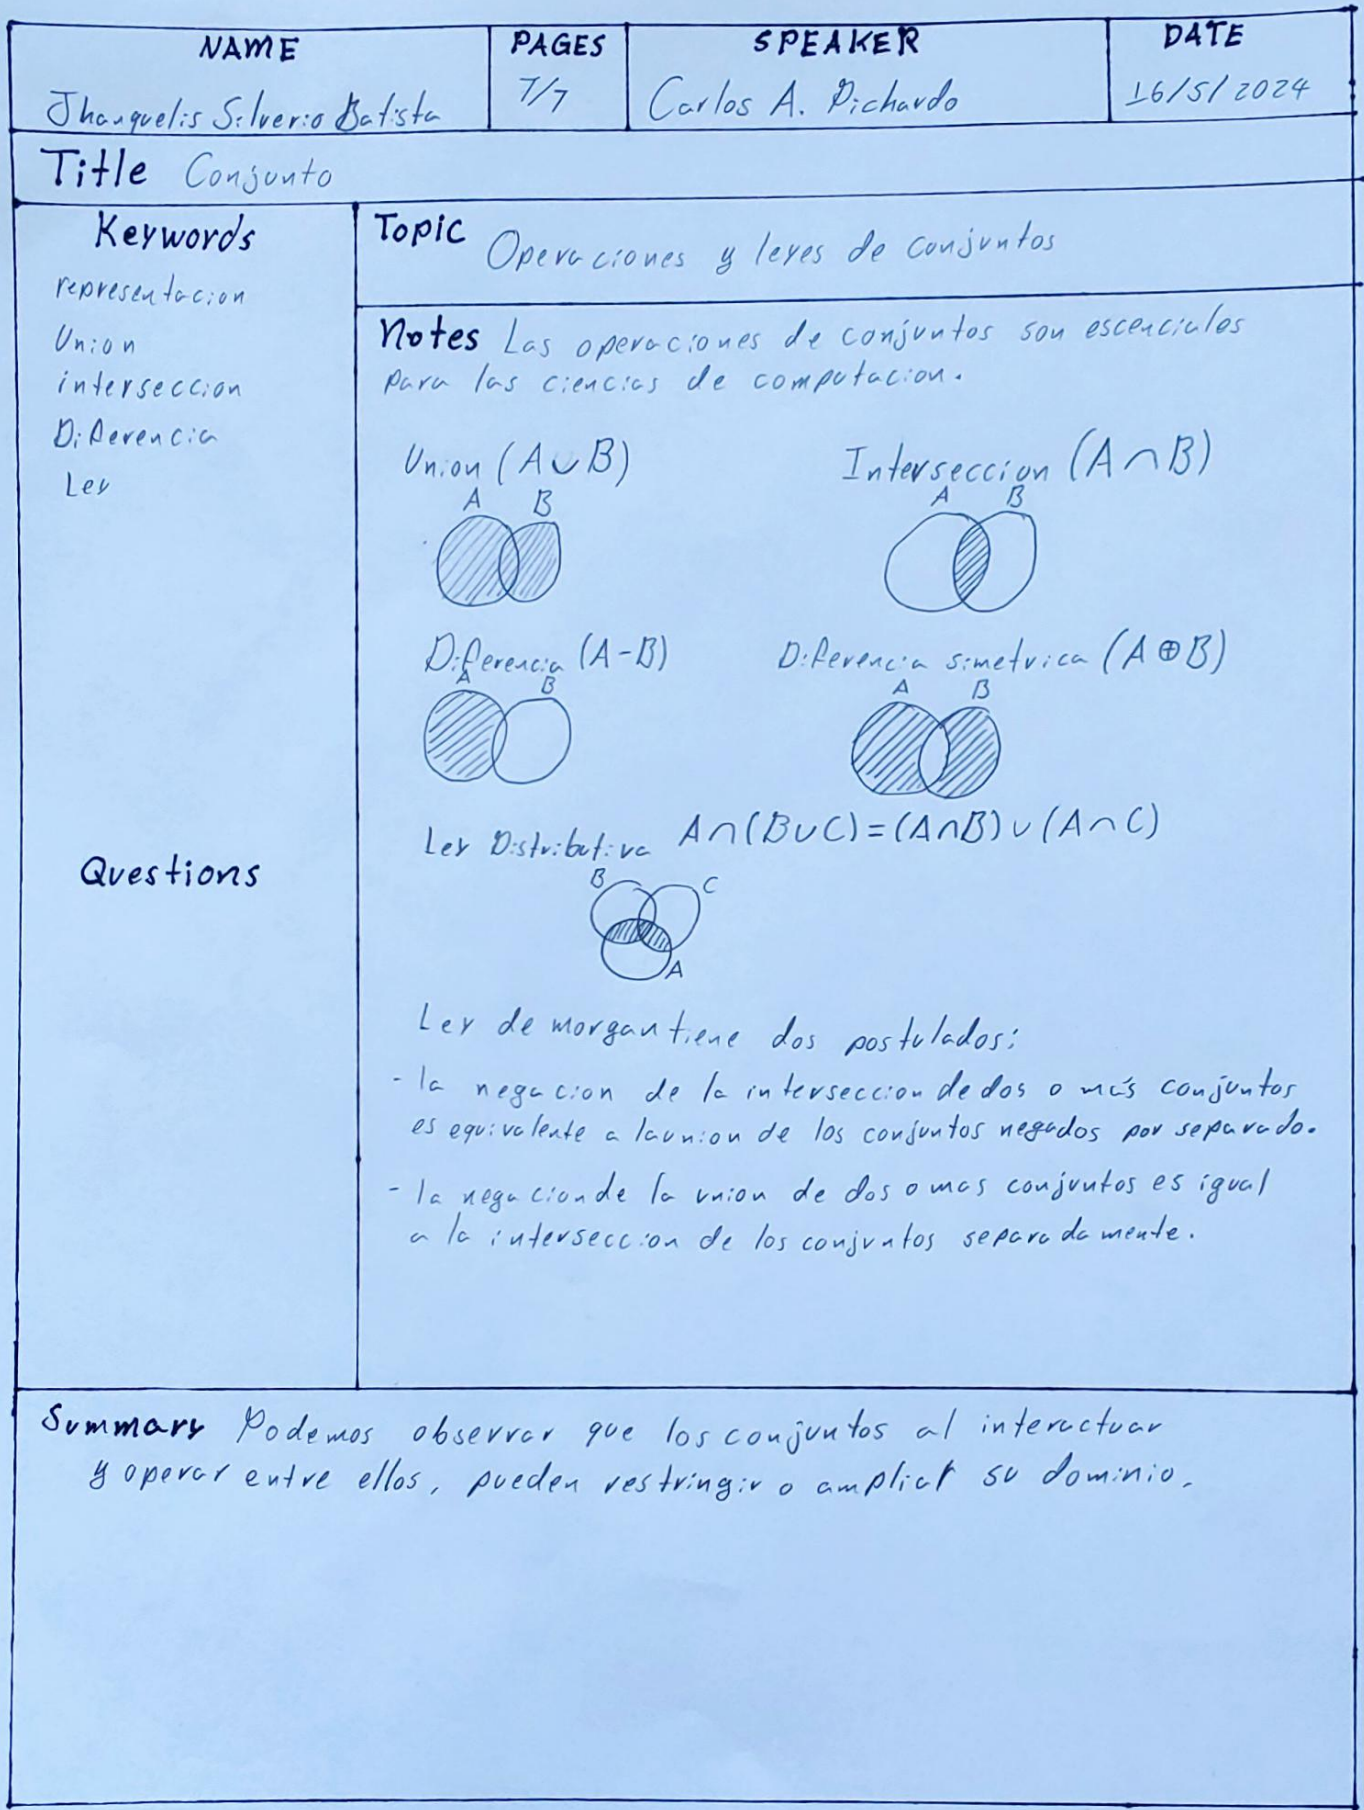 NAME
Jhanquelis Silverio Batista
PAGES
7/7
SPEAKER
Carlos A. Pichardo
DATE
16/5/2024
Title Conjunto
Keywords
representacion
Union
interseccion
Diferencia
Ley
Questions
Topic Operaciones y leyes de conjuntos
Notes Las operaciones de conjuntos son escenciales
para las ciencias de computacion.
Union (A∪B)
A B
Interseccion (A∩B)
A B
Diferencia (A-B)
A B
Diferencia simetrica (A⊕B)
A B
Ley Distributiva A∩(B∪C)=(A∩B)∪(A∩C)
B C
A
Ley de morgan tiene dos postulados:
- la negacion de la interseccion de dos o más conjuntos
es equivalente a la union de los conjuntos negados por separado.
- la negacion de la union de dos o mas conjuntos es igual
a la interseccion de los conjuntos separadamente.
Summary Podemos observar que los conjuntos al interactuar
y operar entre ellos, pueden restringir o ampliar su dominio.